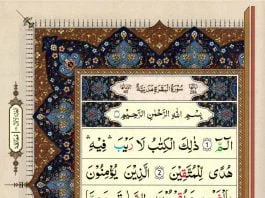 سُوْرَةُ الْبَقَرَةِ مَدَنِيَّةٌ
بِسْمِ اللّٰهِ الرَّحْمٰنِ الرَّحِيْمِ
الٓمّٓ ۝١ ذٰلِكَ الْكِتٰبُ لَا رَيْبَ ۛ فِيْهِ ۛ
هُدًى لِّلْمُتَّقِيْنَ ۝٢ الَّذِيْنَ يُؤْمِنُوْنَ